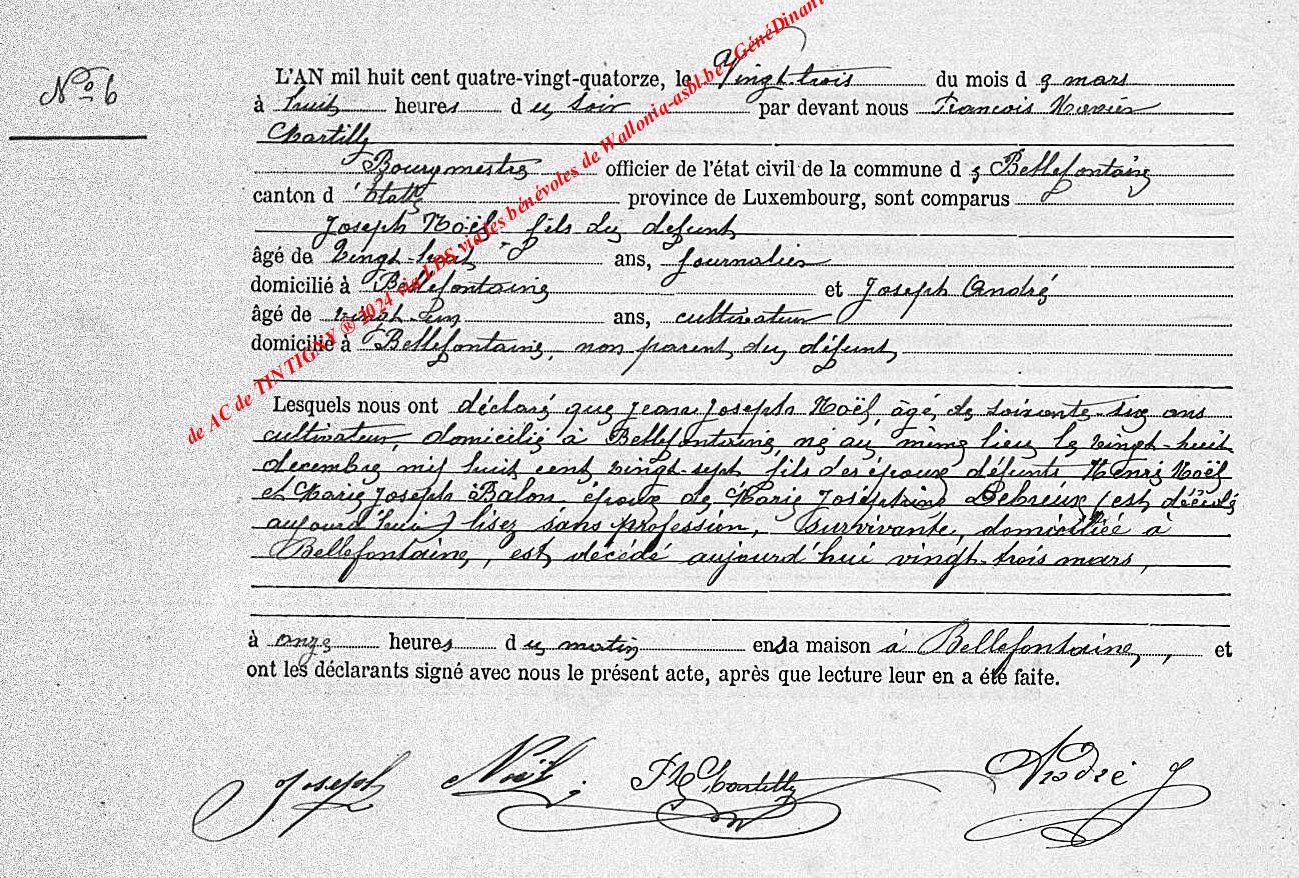 Nº 6
L'AN mil huit cent quatre-vingt-quatorze, le Vingt-trois du mois d e mars
à huit heures d u soir par devant nous Francois Xavier
Chartilly
Bourgmestre officier de l'état civil de la commune d e Bellefontaine
canton d' Etalle province de Luxembourg, sont comparus
Joseph Noël fils du défunt
âgé de vingt-huit ans, journalier
domicilié à Bellefontaine et Joseph André
âgé de vingt-un ans, cultivateur
domicilié à Bellefontaine, non parent du défunt
Lesquels nous ont déclaré que Jean Joseph Noël, âgé de soixante-six ans
cultivateur, domicilié à Bellefontaine, né au même lieu le vingt-huit
decembre mil huit cent vingt-sept fils des époux défunts Henri Noël
et Marie Joseph Balon époux de Marie Joséphine Lebreux (est décédé
aujourd'hui) lisez sans profession, survivante, domiciliée à
Bellefontaine, est décédé aujourd'hui vingt-trois mars,
à onze heures d u matin en sa maison à Bellefontaine, , et
ont les déclarants signé avec nous le présent acte, après que lecture leur en a été faite.
Joseph Noël. FX Chartilly André J
de AC de TINTIGNY ® 2024 via LDS via les bénévoles de Wallonia-asbl.be - GénéDinant